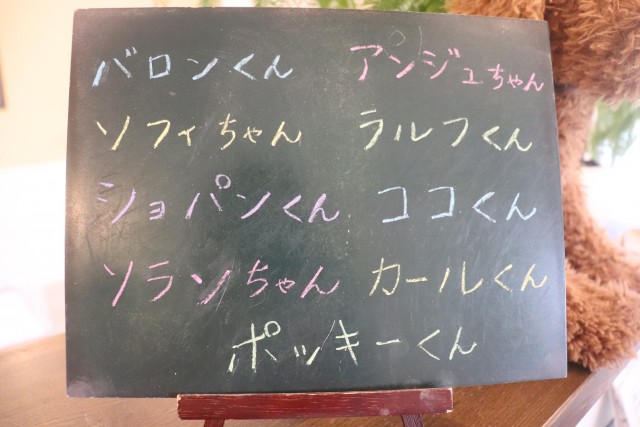 バロンくん アンジュちゃん
ソフィちゃん ラルフくん
ショパンくん ココくん
ソランちゃん カールくん
ポッキーくん